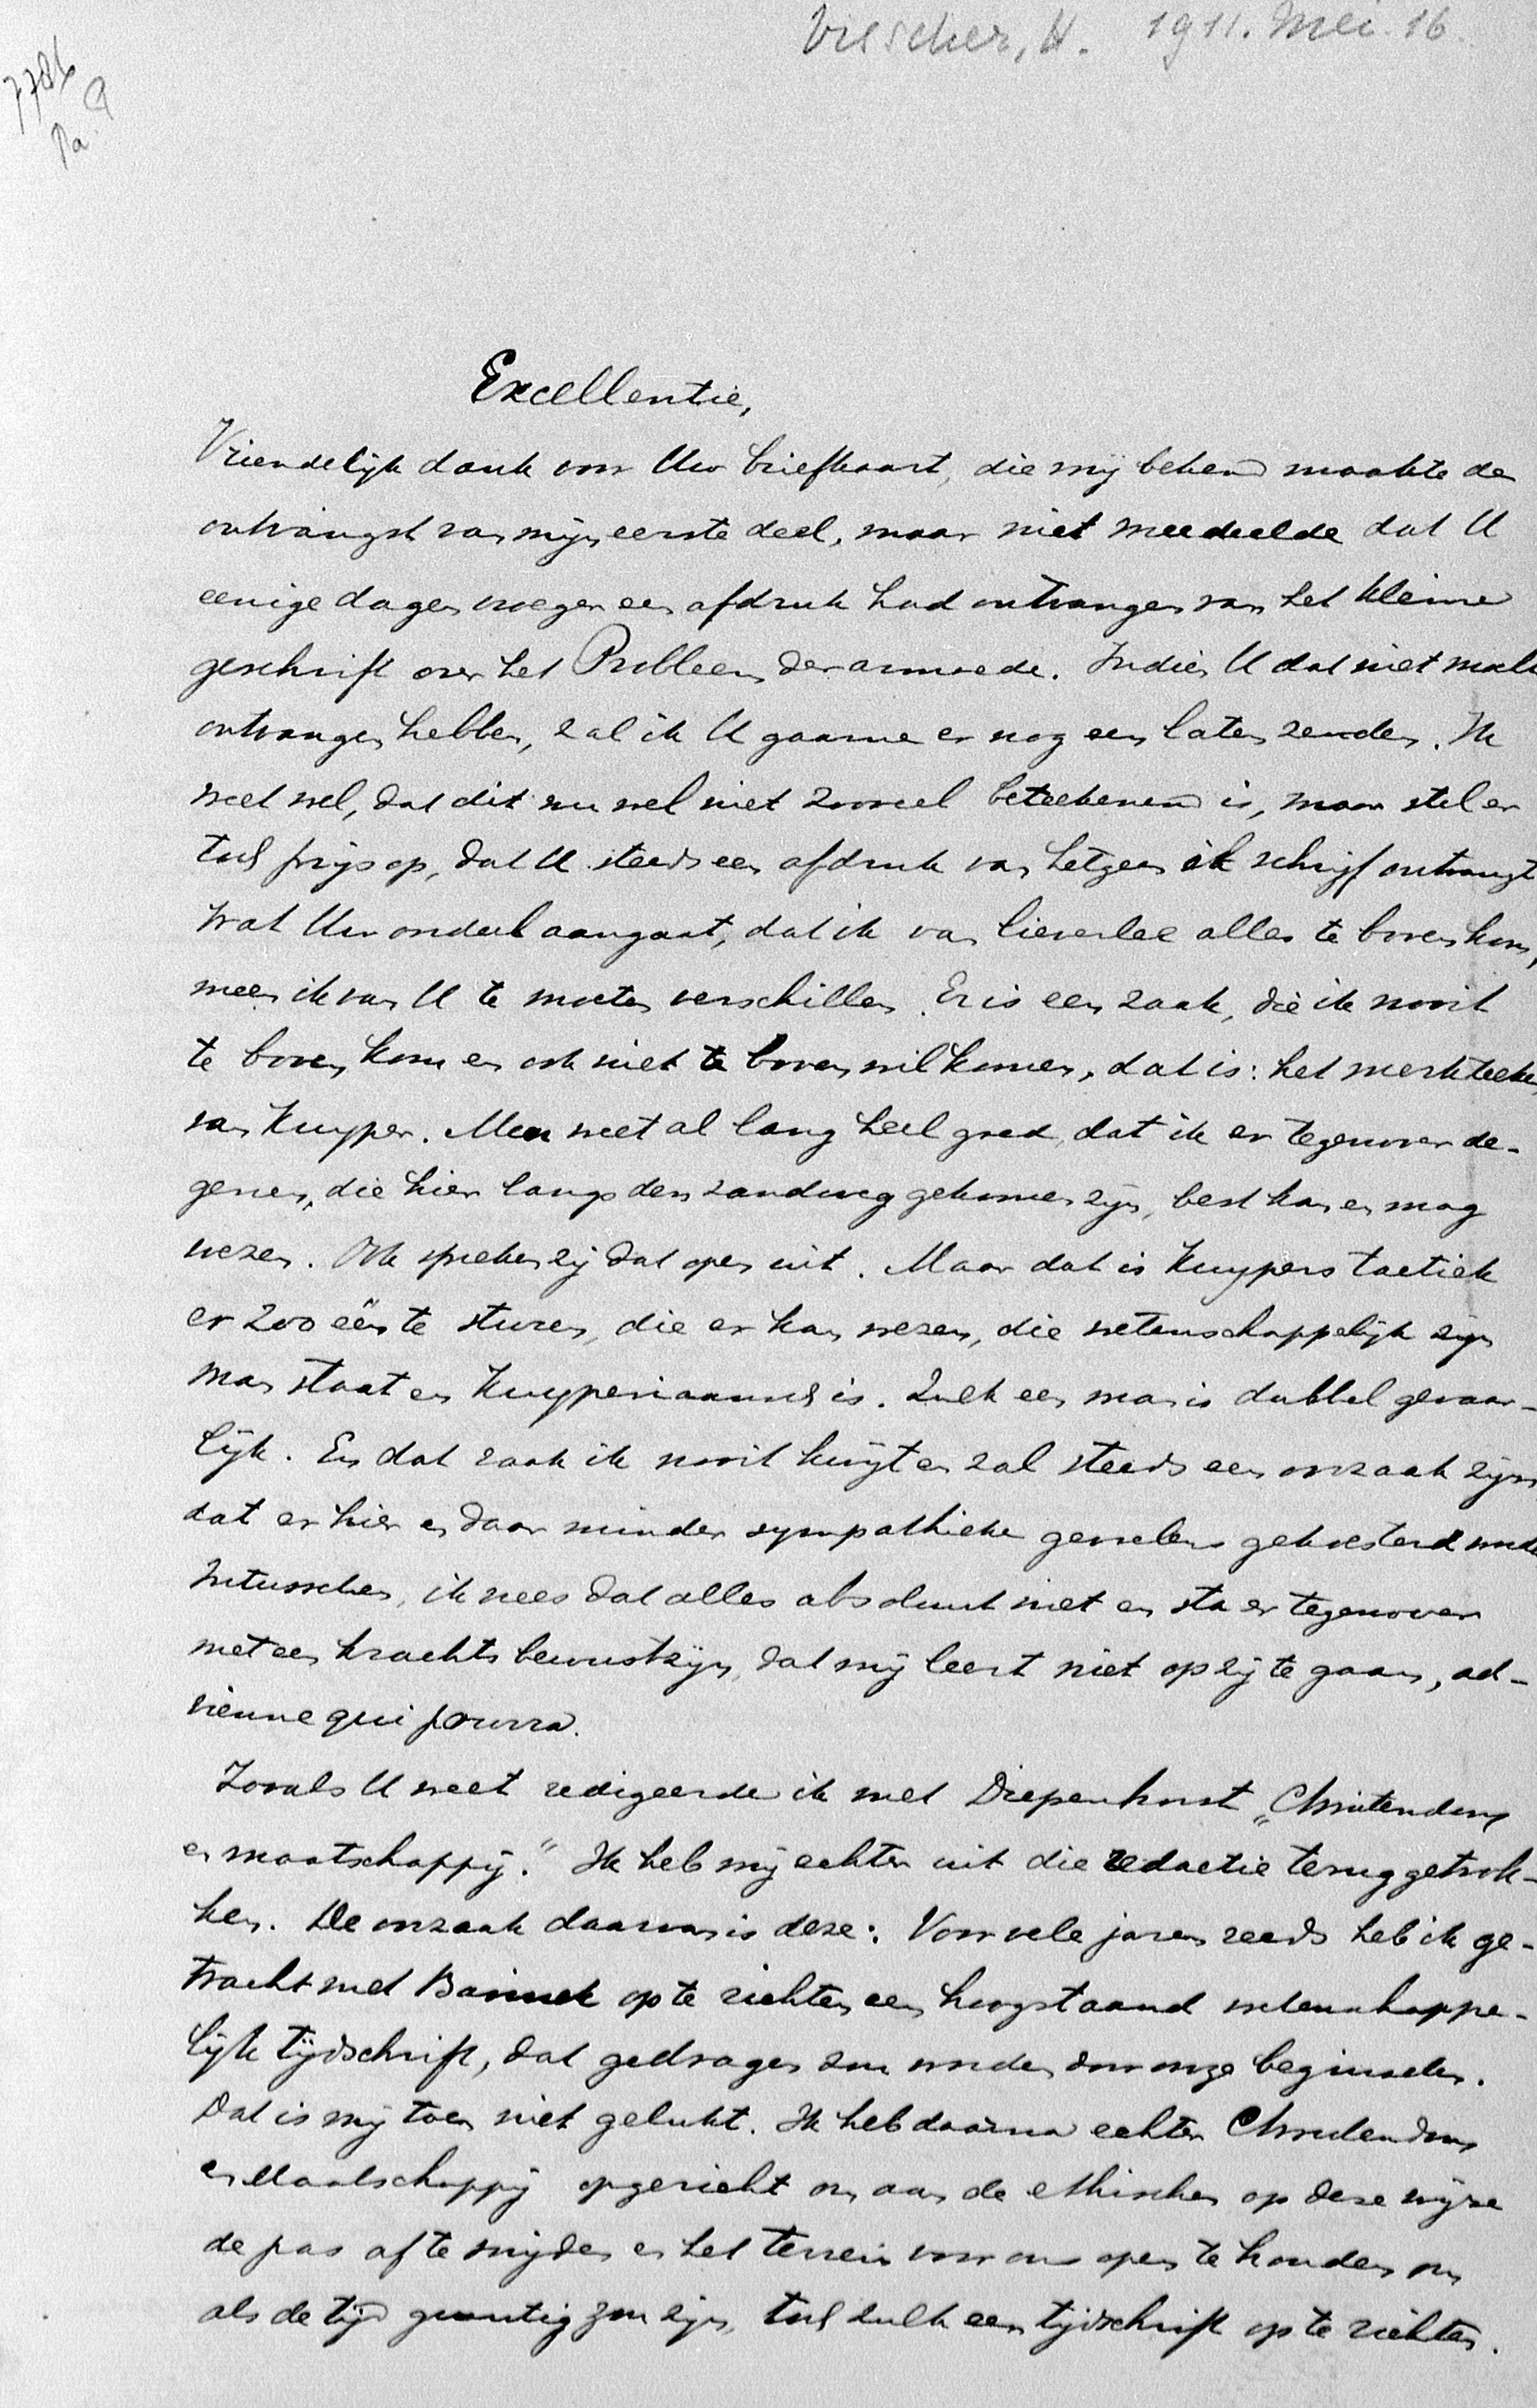 Visscher, H. 1911. Mei. 16.
7786
Pa 9
Excellentie,
Vriendelijk dank voor Uw briefkaart, die mij bekend maakte de
ontvangst van mijn eerste deel, maar niet meedeelde dat U
eenige dagen vroeger een afdruk had ontvangen van het kleine
geschrift over het Probleem der armoede. Indien U dat niet mocht
ontvangen hebben, zal ik U gaarne er nog een laten zenden. Ik
weet wel, dat dit nu wel niet zooveel beteekenend is, maar stel er
toch prijs op, dat U steeds een afdruk van hetgeen ik schrijf ontvangt
Wat Uw oordeel aangaat, dat ik van lieverlee alles te boven kom,
meen ik van U te moeten verschillen. Er is een zaak, die ik nooit
te boven kom en ook niet te boven wil komen, dat is: het merkteeken
van Kuyper. Men weet al lang heel goed, dat ik er tegenover de-
genen, die hier langs den zandweg gekomen zijn, best kan en mag
wezen. Ook spreken zij dat open uit. Maar dat is Kuypers tactiek
er zoo één te sturen, die er kan wezen, die wetenschappelijk zijn
man staat en Kuyperiaansch is. Zulk een man is dubbel gevaar-
lijk. En dat raak ik nooit kwijt en zal steeds een oorzaak zijn
dat er hier en daar minder sympathieke gevoelens gekoesterd worden
Intusschen, ik vrees dat alles absoluut niet en sta er tegenover
met een krachtsbewustzijn, dat mij leert niet op zij te gaan, ad-
vienne qui pourra.
Zooals U weet redigeerde ik met Diepenhorst „Christendom
en maatschappij." Ik heb mij echter uit die redactie teruggetrok-
ken. De oorzaak daarvan is deze: Voor vele jaren reeds heb ik ge-
tracht met Bavinck op te richten een hoogstaand wetenschappe-
lijk tijdschrift, dat gedragen zou worden door onze beginselen.
Dat is mij toen niet gelukt. Ik heb daarna echter Christendom
en Maatschappij opgericht om aan de ethischen op deze wijze
de pas af te snijden en het terrein voor ons open te houden om
als de tijd gunstig zou zijn, toch zulk een tijdschrift op te richten.